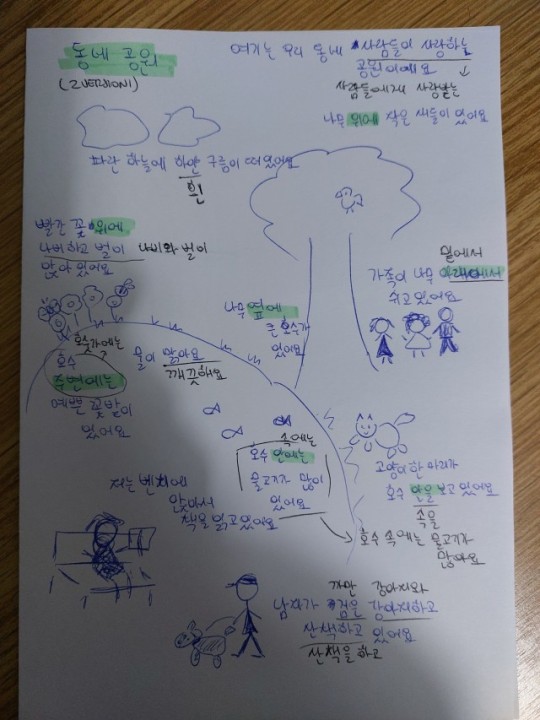 동네 공원
(2 VERSION)
여기는 우리 동네 사람들이 사랑하는
공원이에요
사람들에게 사랑받는
나무 위에 작은 새들이 있어요
파란 하늘에 하얀 구름이 떠있어요
흰
빨간 꽃 위에
나비하고 벌이 나비와 벌이
앉아 있어요
밑에서
가족이 나무 아래에서
쉬고 있어요
나무 옆에
큰 호수가
있어요
호숫가에는
호수
주변에는
예쁜 꽃밭이
있어요
물이 맑아요
깨끗해요
속에는
호수 안에는
물고기가 많이
있어요
고양이 한 마리가
호수 안을 보고 있어요
속을
호수 속에는 물고기가
많아요
저는 벤치에
앉아서
책을 읽고 있어요
까만 강아지와
남자가 검은 강아지하고
산책하고 있어요
산책을 하고